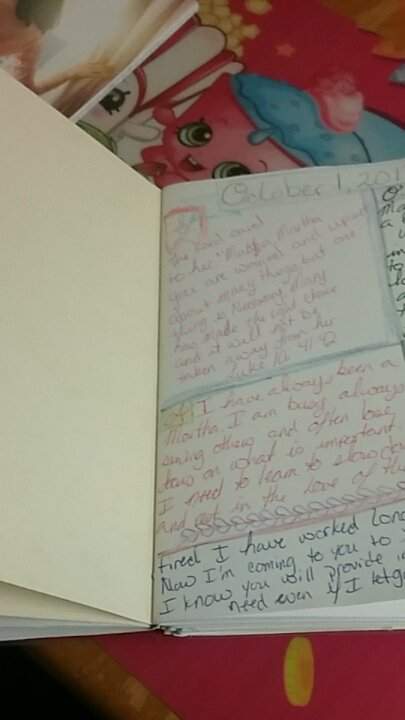 October 1, 201
The Lord said
to her "Martha Martha
you are worried and upset
about many things, but one
thing is necessary. Mary
has made the right choice
and it will not be
taken away from her
Luke 10 41-42
I have always been a
Martha I am busy always
others and often lose
on what is important.
I need to learn to slow
and in the love of
tired I have worked
Now I'm coming to you to
I know you will provide
need even if I let go